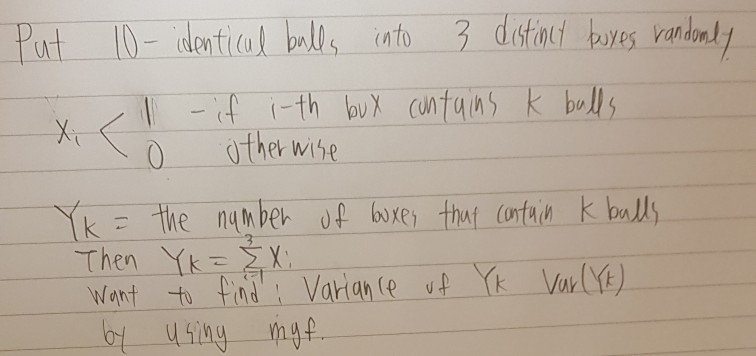 Put 10 - identical balls into 3 distinct boxes randomly
Xi < 1 - if i-th box contains k balls
0 otherwise
Yk = the number of boxes that contain k balls
Then Yk = 3 Σ i=1 Xi
Want to find : Variance of Yk Var(Yk)
by using mgf.